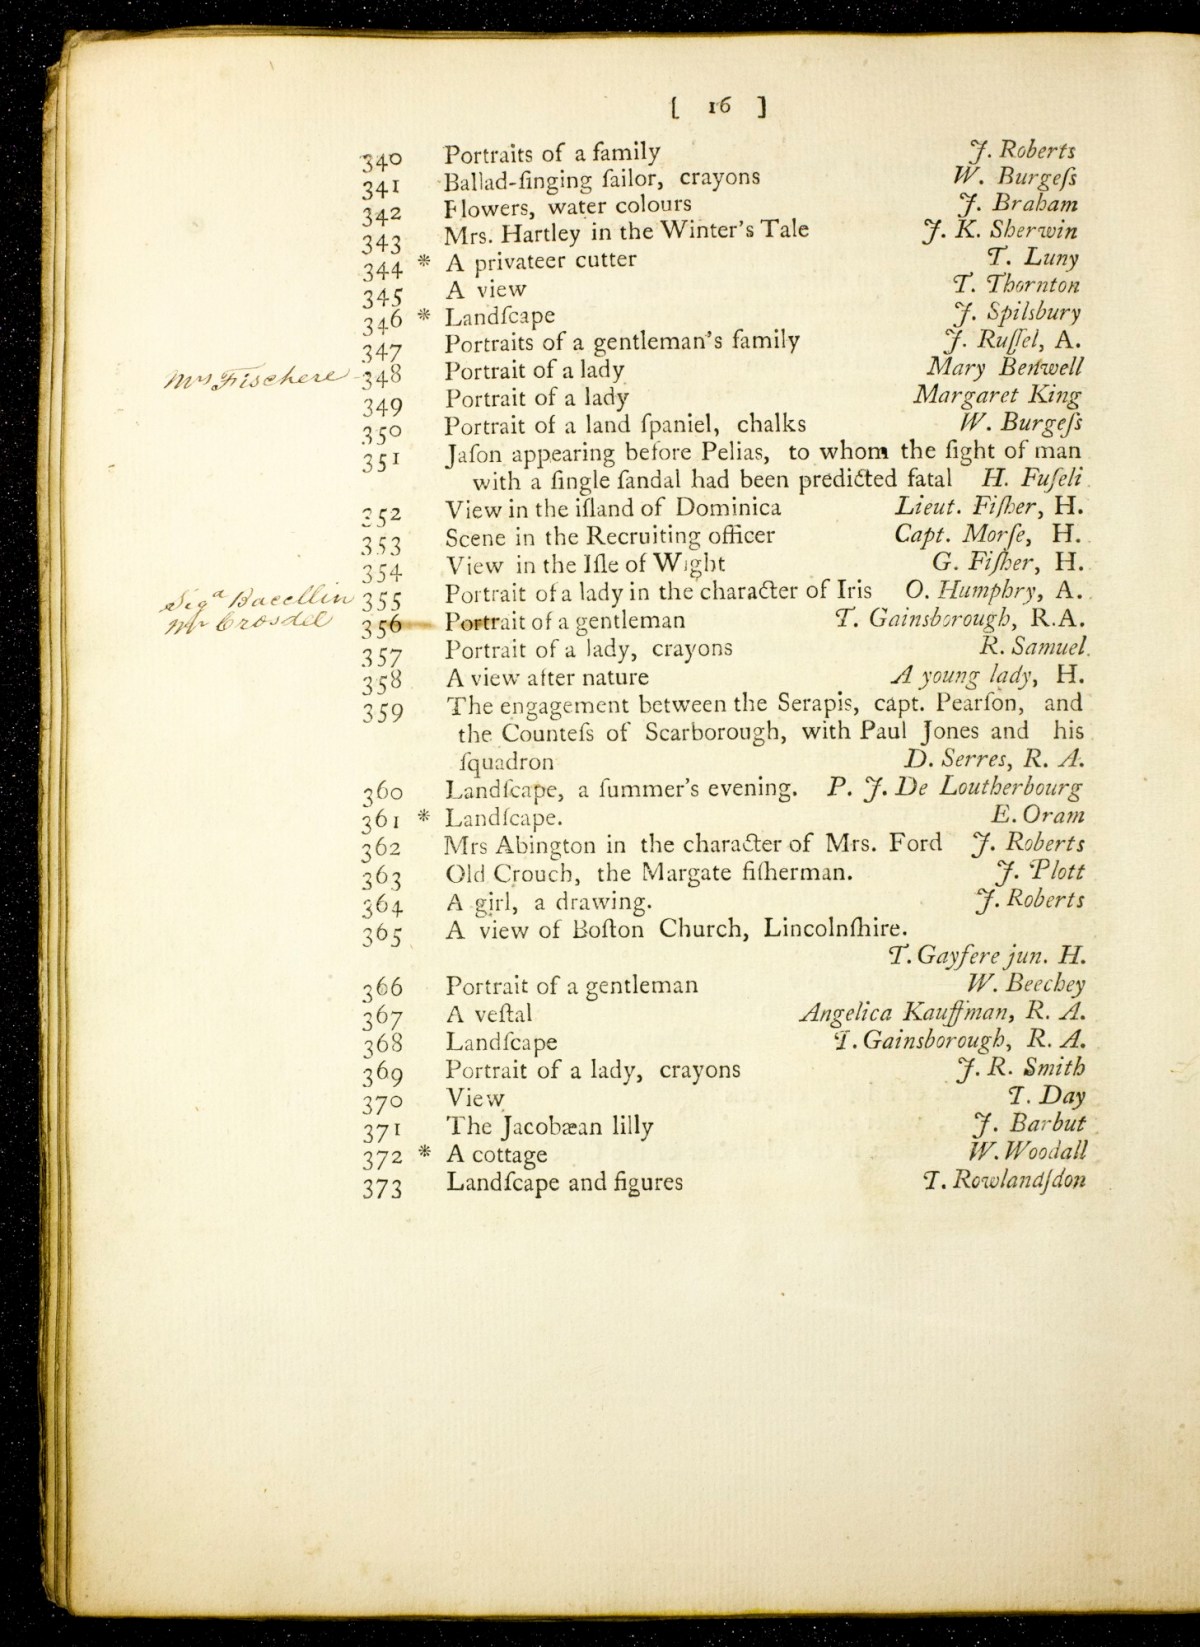 [ 16 ]
340 Portraits of a family J. Roberts
341 Ballad-ſinging ſailor, crayons W. Burgeſs
342 Flowers, water colours J. Braham
343 Mrs. Hartley in the Winter's Tale J. K. Sherwin
344 * A privateer cutter T. Luny
345 A view T. Thornton
346 * Landſcape J. Spilsbury
347 Portraits of a gentleman's family J. Ruſſel, A.
Mrs Fischere - 348 Portrait of a lady Mary Benwell
349 Portrait of a lady Margaret King
350 Portrait of a land ſpaniel, chalks W. Burgeſs
351 Jaſon appearing before Pelias, to whom the ſight of man
with a ſingle ſandal had been predicted fatal H. Fuſeli
352 View in the iſland of Dominica Lieut. Fiſher, H.
353 Scene in the Recruiting officer Capt. Morſe, H.
354 View in the Iſle of Wight G. Fiſher, H.
Siga Bacellin 355 Portrait of a lady in the character of Iris O. Humphry, A.
Mr Crosdel 356 Portrait of a gentleman T. Gainsborough, R.A.
357 Portrait of a lady, crayons R. Samuel.
358 A view after nature A young lady, H.
359 The engagement between the Serapis, capt. Pearſon, and
the Counteſs of Scarborough, with Paul Jones and his
ſquadron D. Serres, R. A.
360 Landſcape, a ſummer's evening. P. J. De Loutherbourg
361 * Landſcape. E. Oram
362 Mrs Abington in the character of Mrs. Ford J. Roberts
363 Old Crouch, the Margate fiſherman. J. Plott
364 A girl, a drawing. J. Roberts
365 A view of Boſton Church, Lincolnſhire.
T. Gayfere jun. H.
366 Portrait of a gentleman W. Beechey
367 A veſtal Angelica Kauffman, R. A.
368 Landſcape T. Gainsborough, R. A.
369 Portrait of a lady, crayons J. R. Smith
370 View T. Day
371 The Jacobæan lilly J. Barbut
372 * A cottage W. Woodall
373 Landſcape and figures T. Rowlandſdon